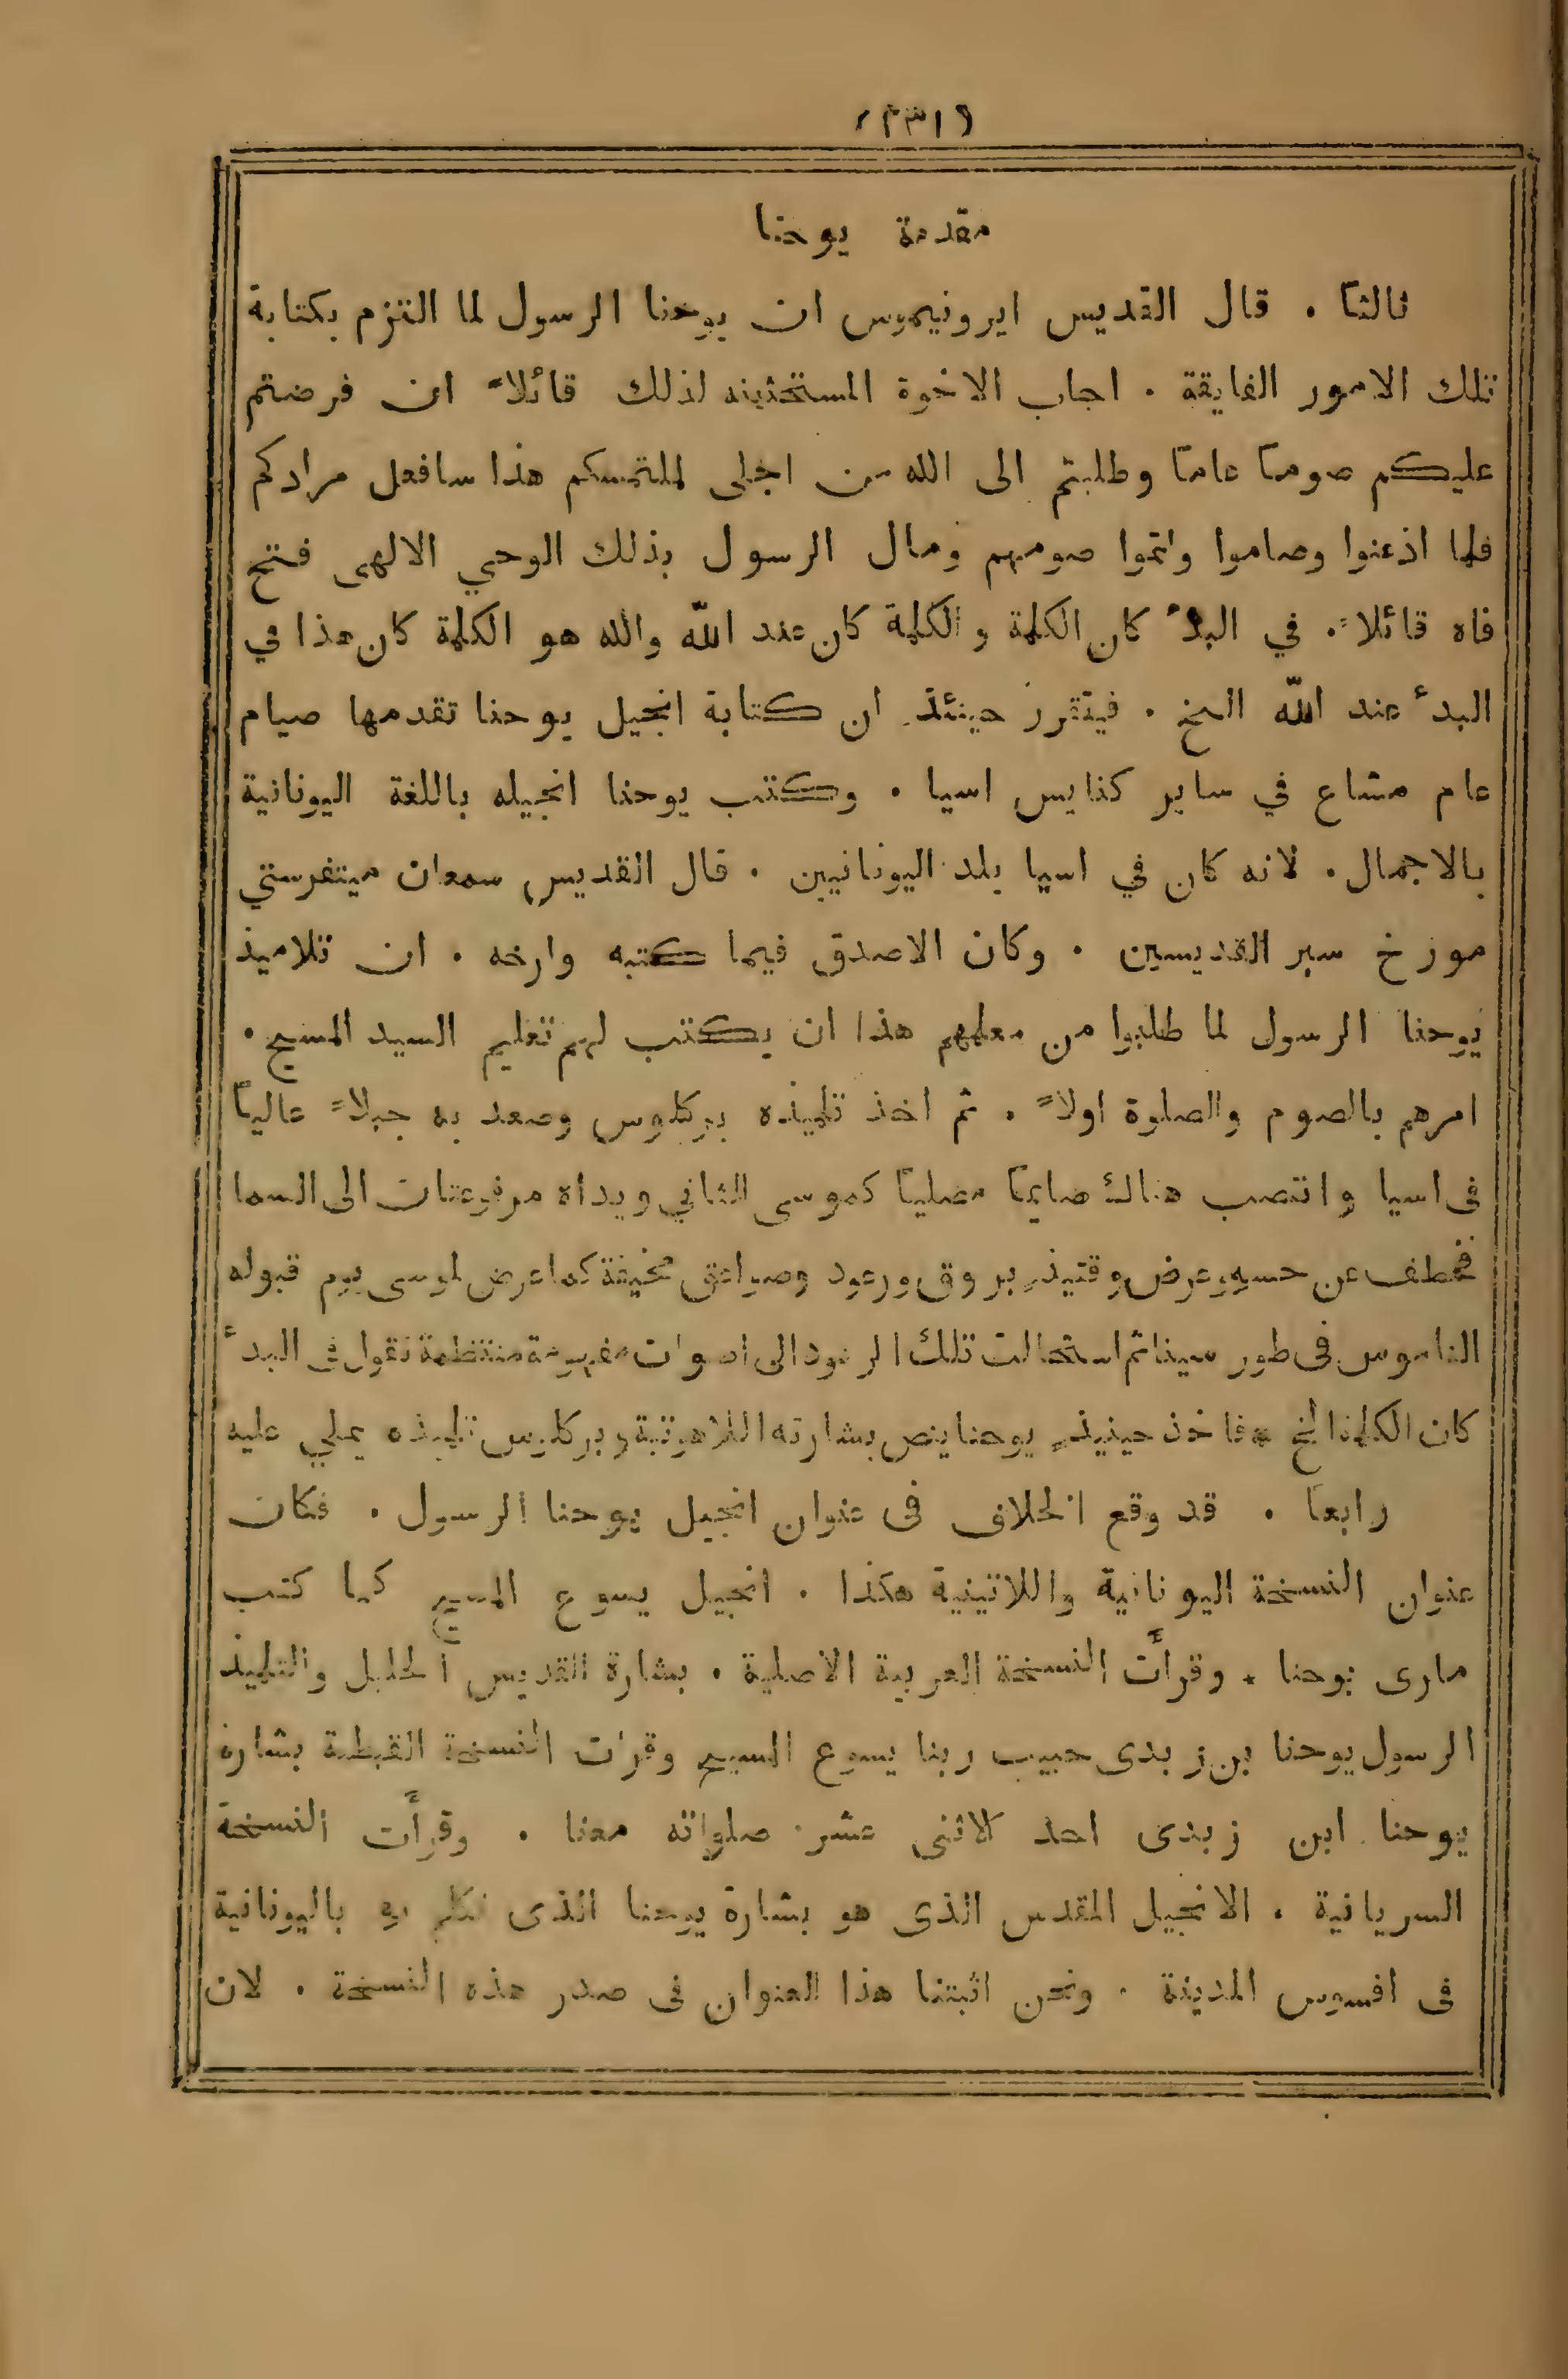 (١٣٢)
مقدمة يوحنا
ثالثاً . قال القديس ايرونيموس ان يوحنا الرسول لما التزم بكتابة
تلك الامور الفايقة . اجاب الاخوة المستحثينه لذلك قائلاً ان فرضتم
عليكم صوماً عاماً وطلبتم الى الله من اجلى لملتمسكم هذا سافعل مرادكم
فلما اذعنوا وصاموا واتموا صومهم ومال الرسول بذلك الوحي الالهى فتح
فاه قائلاً . في البدٔ كان الكلمة والكلمة كان عند الله والله هو الكلمة كان هذا في
البدٔ عند الله الىخ . فيتقرر حينئذ ان كتابة انجيل يوحنا تقدمها صيام
عام مشاع في ساير كنايس اسيا . وكتب يوحنا انجيله باللغة اليونانية
بالاجمال . لانه كان في اسيا بلد اليونانيين . قال القديس سمعان ميتفرستي
مورخ سير القديسين . وكان الاصدق فيما كتبه وارخه . ان تلاميذ
يوحنا الرسول لما طلبوا من معلمهم هذا ان يكتب لهم تعليم السيد المسيح .
امرهم بالصوم والصلوة اولاً . ثم اخذ تلميذه بركلوس وصعد به جبلاً عالياً
فى اسيا وانتصب هناك صايماً مصلياً كموسى الثاني ويداه مرفوعتان الى السما
فخطف عن حسه وعرض وقتيذٍ بروق ورعود وصواعق مخيفة كما عرض لموسى يوم قبوله
الناموس فى طور سينا ثم استحالت تلك الرعود الى اصوات مفهومة منتظمة تقول فى البدٔ
كان الكلمة الخ * فاخذ حينيذٍ يوحنا ينص بشارته اللاهوتية وبركلوس تلميذه يملي عليه
رابعاً . قد وقع الخلاف فى عنوان انجيل يوحنا الرسول . فكان
عنوان النسخة اليونانية واللاتينية هكذا . انجيل يسوع المسيح كما كتب
مارى يوحنا . وقرأت النسخة العربية الاصلية . بشارة القديس الجليل والتلميذ
الرسول يوحنا بن زبدى حبيب ربنا يسوع المسيح وقرات النسخة القبطية بشارة
يوحنا ابن زبدى احد الاثنى عشر صلواته معنا . وقرأت النسخة
السريانية . الانجيل المقدس الذى هو بشارة يوحنا الذى تكلم به باليونانية
فى افسوس المدينة . ونحن اثبتنا هذا العنوان فى صدر هذه النسخة . لان